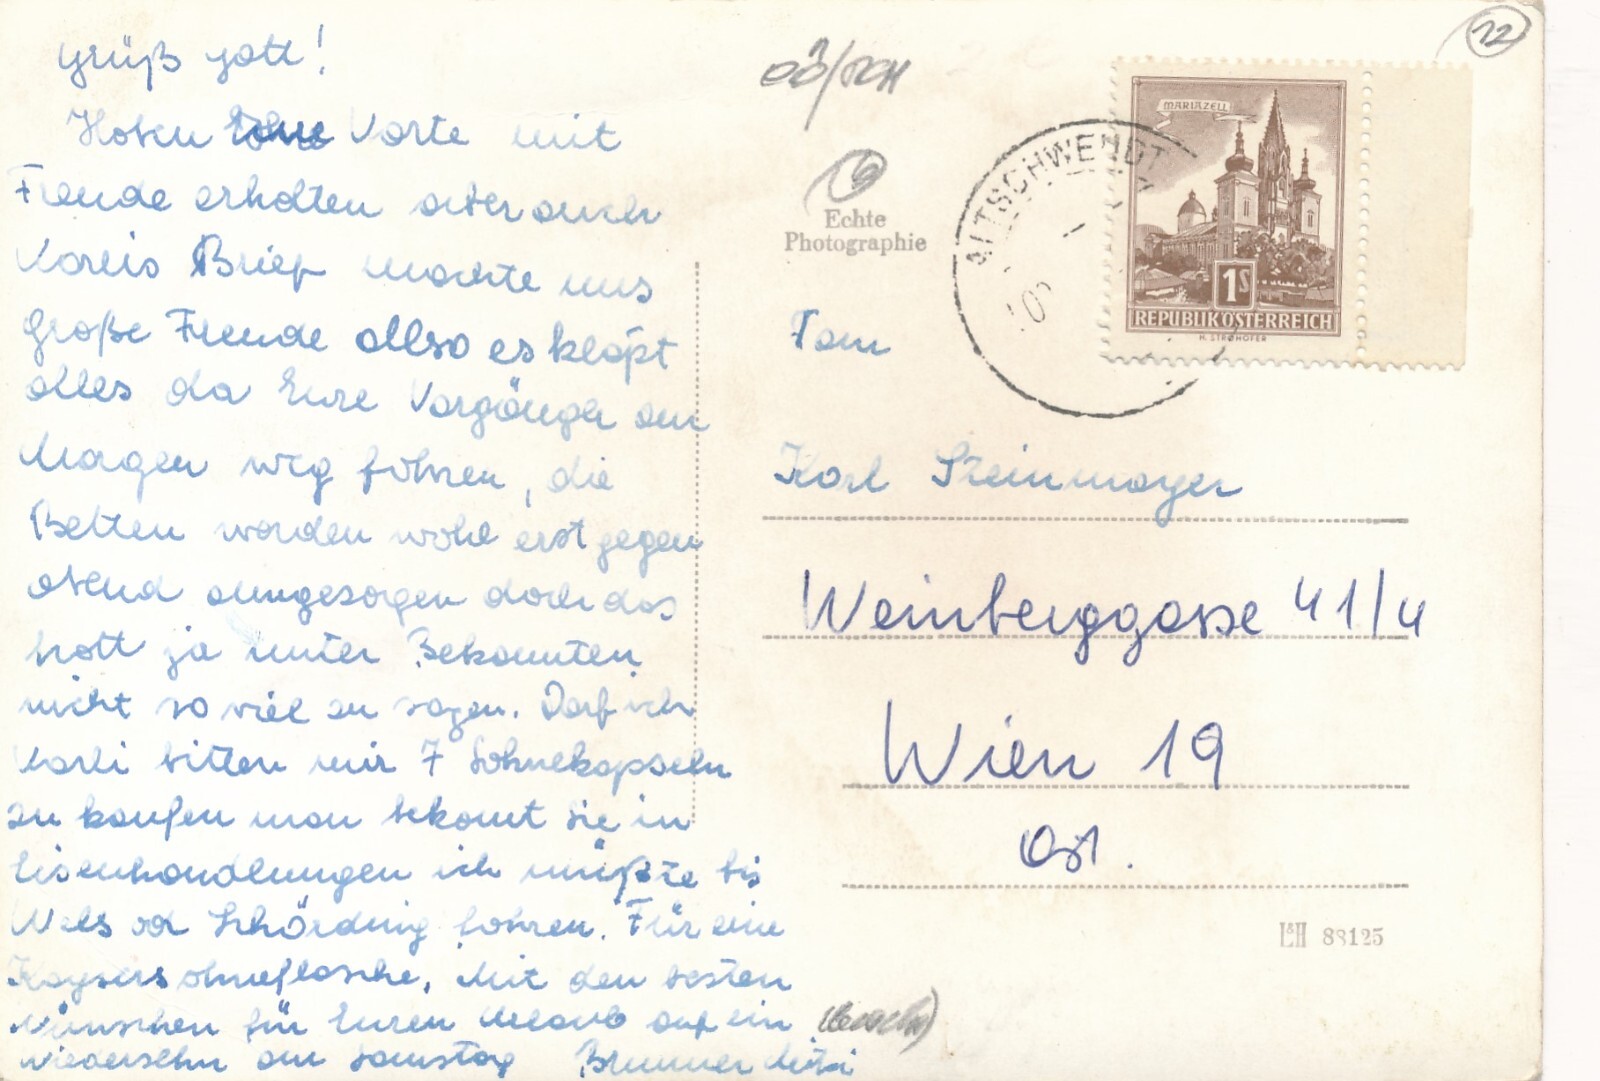 Grüß Gott!
Haben Eure Karte mit
Freude erhalten aber auch
Karlis Brief machte uns
große Freude allso es klapt
alles da Eure Vorgänger am
Morgen weg fahren, die
Betten werden wohl erst gegen
abend umgezogen doch das
hatt ja unter Bekannten
nicht so viel zu sagen. Darf ich
Karli bitten mir 7 Sahnekapseln
zu kaufen man bekomt sie in
Eisenhandlungen ich müßte bis
Wels od Schärding fahren. Für eine
Kaysersahneflasche. Mit den besten
Wünschen für Euren Urlaub auf ein
wiedersehn am Samstag Brunner
OÖ/
12
Echte
Photographie
ALTSCHWENDT
MARIAZELL
1S
REPUBLIK ÖSTERREICH
Fam
Karl Steinmayer
Weinberggasse 41/4
Wien 19
Öst.
L&H 88125